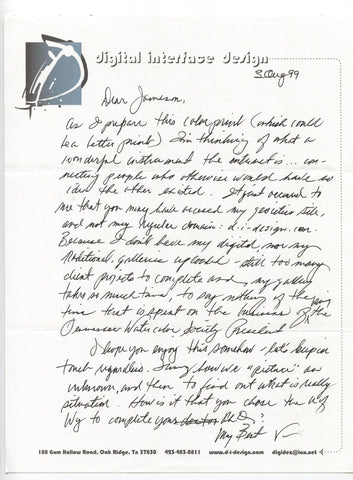 digital interface design
3 Aug 99
Dear Jameson,
As I prepare this color print (which could
be a better print) I'm thinking of what a
wonderful instrument the internet is... con-
necting people who otherwise would have no
idea the other existed. It just occured to
me that you may have accessed my geocities site,
and not my regular domain: d-i-design.com.
Because I don't have my digital, nor my
traditional, galleries uploaded - still too many
client projects to complete and my gallery
takes so much time, to say nothing of the
time that is spent on the business of the
Tennessee Watercolor Society
I hope you enjoy this somehow - let's keep in
touch regardless. Funny how we "picture" an
unknown, and then to find out what is really
situation. How is it that you chose the U of
Wy to complete your PhD?
My Best
188 Gum Hollow Road, Oak Ridge, Tn 37830 423-483-8811 www.d-i-design.com digidez@icx.net